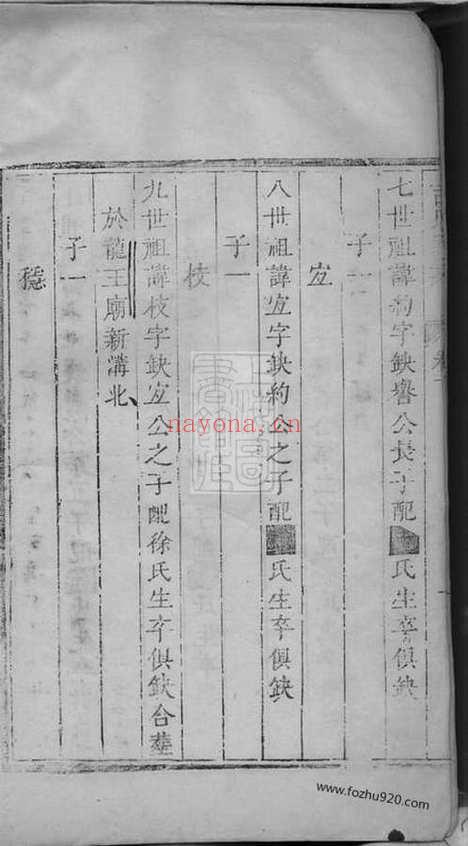 七世祖諱約字缺睿公長子配氏生卒俱缺
子一
宜
八世祖諱宜字缺約公之子配氏生卒俱缺
子一
枝
九世祖諱枝字缺宜公之子配徐氏生卒俱缺合葬
於龍王廟新溝北
子一
nayona.cn
www.fozhu920.com